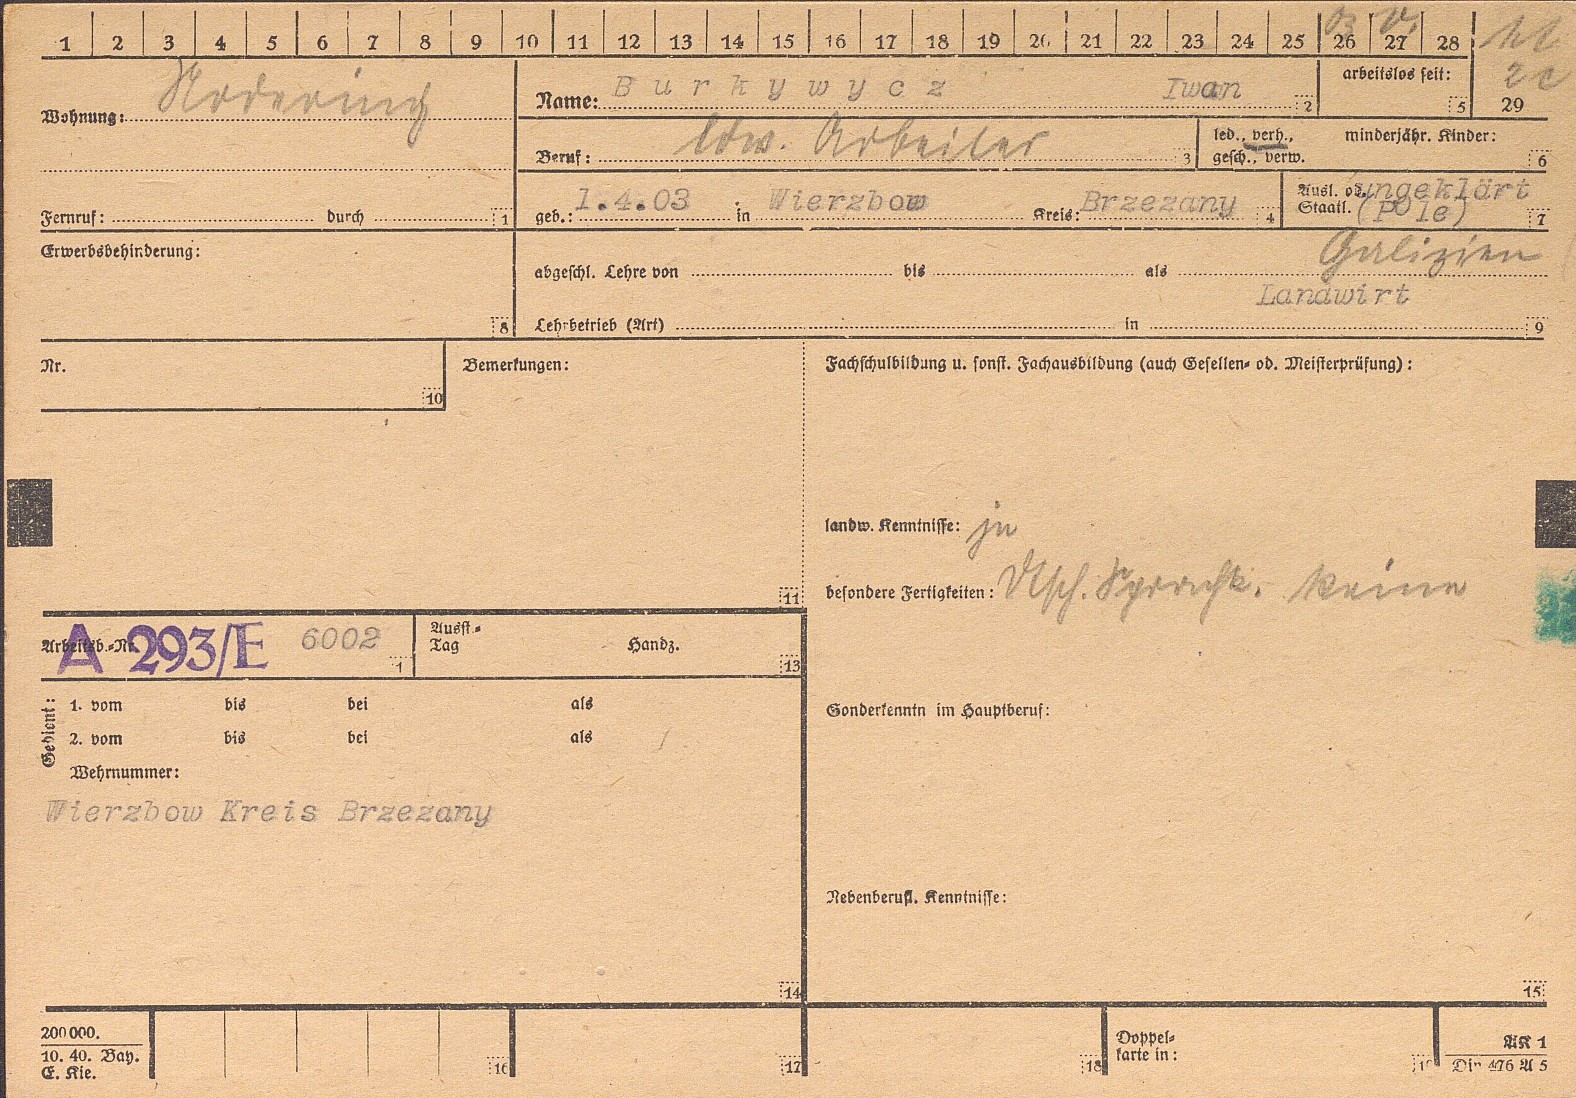 1 2 3 4 5 6 7 8 9 10 11 12 13 14 15 16 17 18 19 20 21 22 23 24 25 26 27 28
29
Wohnung:
Name: Burkywycz Iwan 2
arbeitslos seit: 5
Beruf: ldw. Arbeiter 3
led., verh., gesch., verw.
minderjähr. Kinder: 6
Fernruf: durch 1
geb.: 1.4.03 in Wierzbow Kreis: Brzezany 4
Ausl. od. Staatl. ungeklärt (Pole) 7
Galizien
Erwerbsbehinderung: 8
abgeschl. Lehre von bis als
Landwirt
Lehrbetrieb (Art) in 9
Nr. 10
Bemerkungen: 11
Fachschulbildung u. sonst. Fachausbildung (auch Gesellen- od. Meisterprüfung):
landw. Kenntnisse: ja
besondere Fertigkeiten: Dtsch. Sprachk. keine
Arbeitsb.-Nr. A 293/E 6002
Ausst.-Tag Handz. 13
Gedient:
1. vom bis bei als
2. vom bis bei als
Wehrnummer:
Wierzbow Kreis Brzezany
14
Sonderkenntn im Hauptberuf:
Nebenberufl. Kenntnisse:
15
200 000.
10. 40. Bay.
E. Kie.
16 17 18
Doppel-
karte in:
AK 1
Din 476 A 5